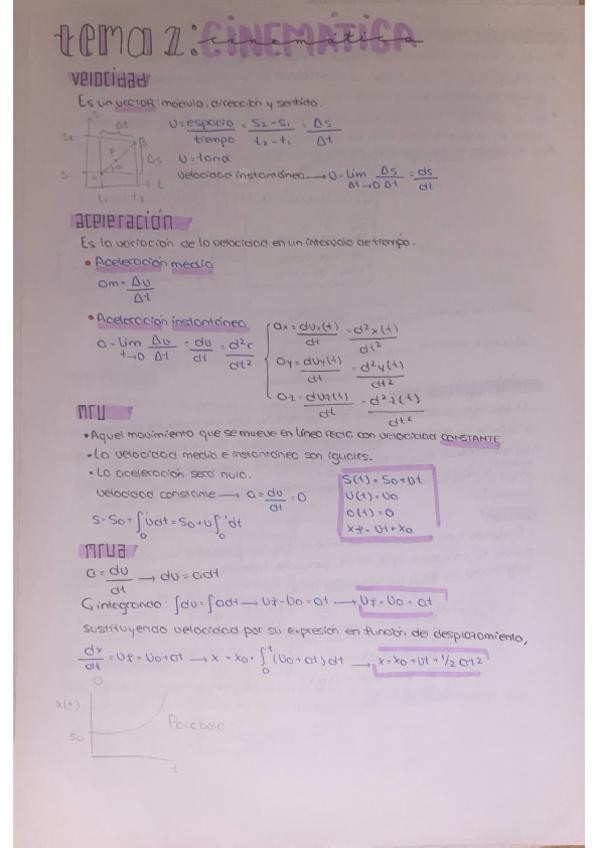 tema 2: CINEMÁTICA
cinemática
velocidad
Es un VECTOR: módulo, dirección y sentido.
S Δt
S2 B
Δs
S1 A α
t1 t2 t
v = espacio/tiempo = S2-S1/t2-t1 = Δs/Δt
v = tanα
velocidad instantánea → v = lim Δt→0 Δs/Δt = ds/dt
aceleración
Es la variación de la velocidad en un intervalo de tiempo.
• Aceleración media
am = Δv/Δt
• Aceleración instantánea
a = lim t→0 Δv/Δt = dv/dt = d²r/dt²
ax = dvx(t)/dt = d²x(t)/dt²
ay = dvy(t)/dt = d²y(t)/dt²
az = dvz(t)/dt = d²z(t)/dt²
mru
• Aquel movimiento que se mueve en línea recta con velocidad CONSTANTE
• La velocidad media e instantánea son iguales.
• La aceleración será nula.
velocidad constante → a = dv/dt = 0
S = So + ∫₀ᵗ vdt = So + v ∫₀ᵗ dt
S(t) = So + vt
v(t) = vo
a(t) = 0
xf = vt + xo
mrua
a = dv/dt → dv = adt
integrando: ∫dv = ∫adt → vf - vo = at → vf = vo + at
sustituyendo velocidad por su expresión en función del desplazamiento,
dx/dt = vf = vo + at → x = xo + ∫₀ᵗ (vo + at) dt → x = xo + vt + 1/2 at²
0
x(t)
So
Parábola
t